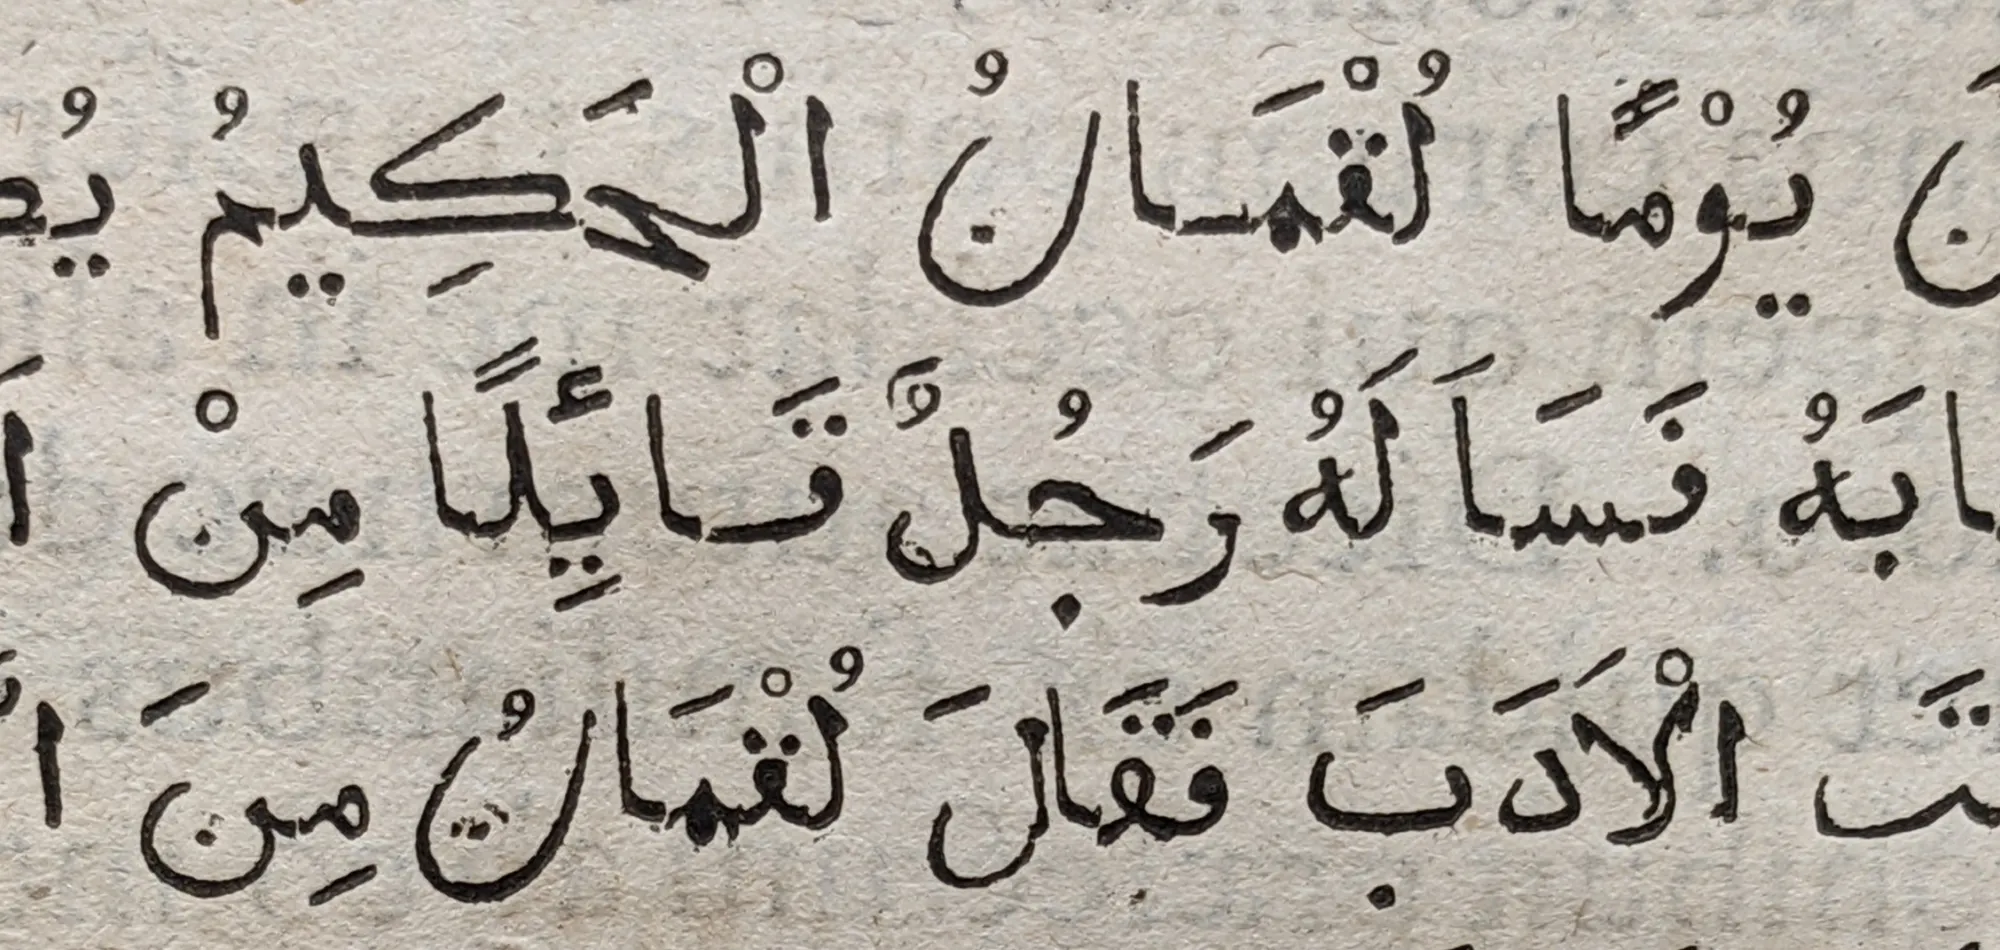 يُوْمًا لُقْمَانُ الْحَكِيمُ
فَسَاَلَهُ رَجُلٌ قَائِلًا مِنْ
الْاَدَبَ فَقَالَ لُقْمَانُ مِنَ